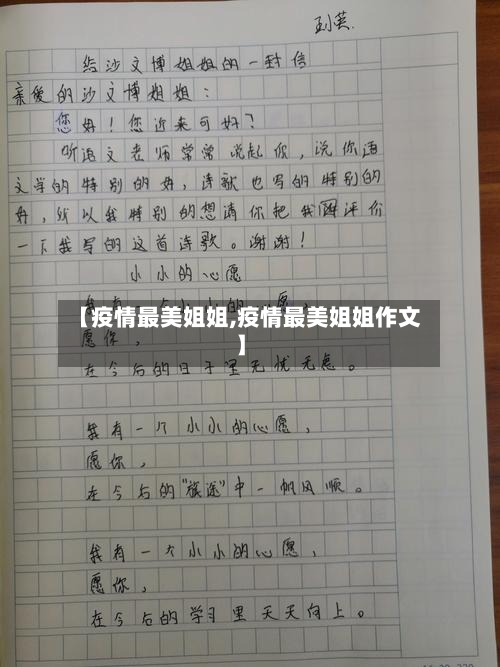 给沙文博姐姐的一封信
亲爱的沙文博姐姐：
您好！您近来可好？
听语文老师常常说起你，说你语
文学的特别的好，诗歌也写的特别的
好，所以我特别的想请你把我评价
一下我写的这首诗歌。谢谢！
小小的心愿
【疫情最美姐姐,疫情最美姐姐作文
】
愿你，
在今后的日子里无忧无虑。
我有一个小小的心愿，
愿你，
在今后的“旅途”中一帆风顺。
我有一个小小的心愿，
愿你，
在今后的学习里天天向上。